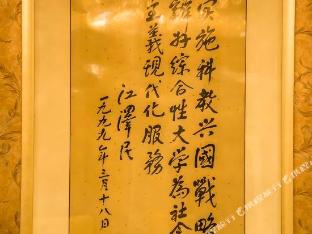 实施科教兴國戰略
辦好綜合性大学為社会
主義現代化服務
江澤民
一九九九年三月十八日